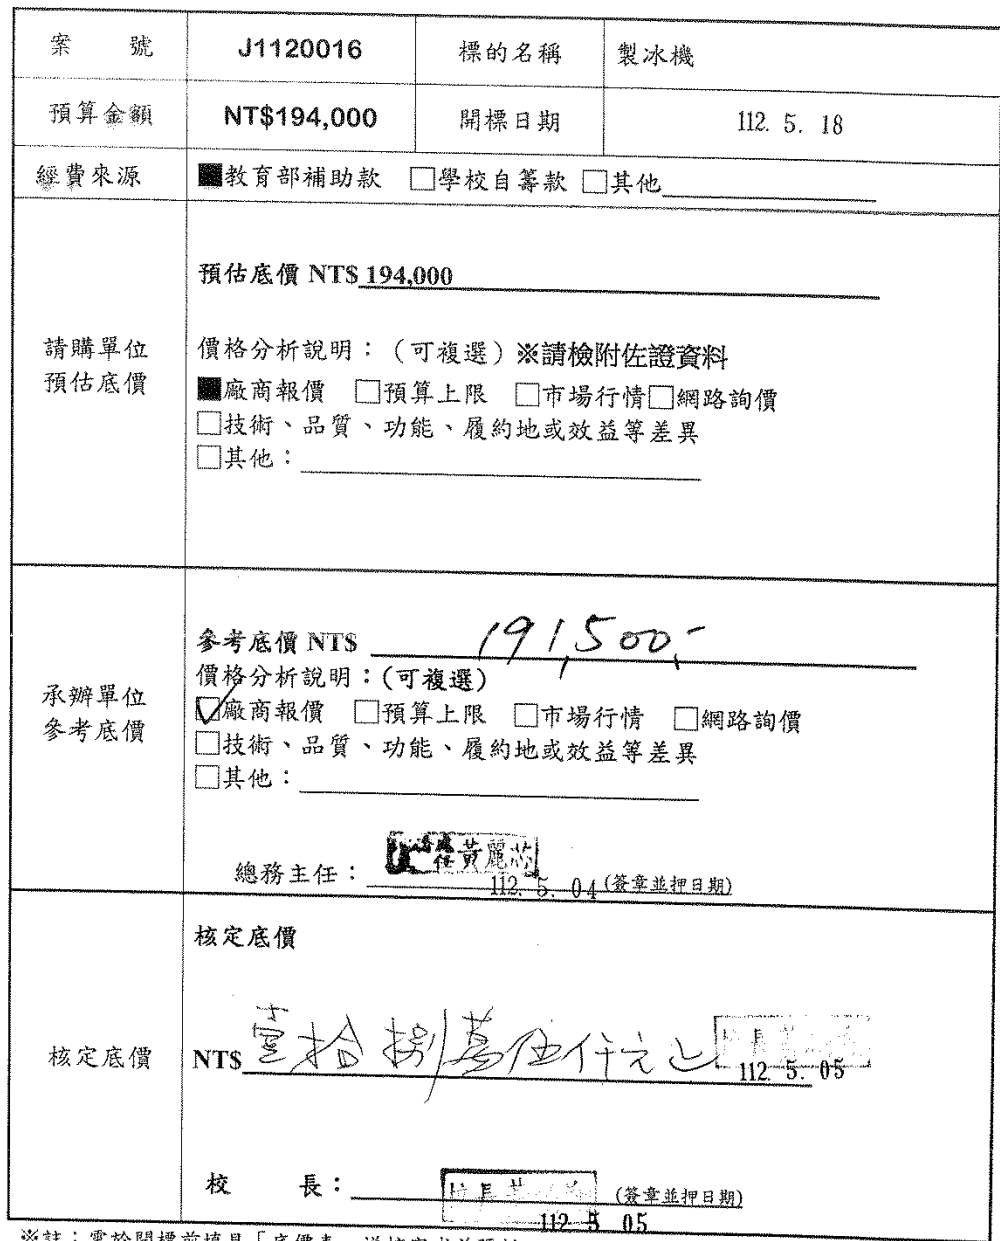 案 號 J1120016 標的名稱 製冰機
預算金額 NT$194,000 開標日期 112. 5. 18
經費來源 ■教育部補助款 □學校自籌款 □其他
預估底價 NT$ 194,000
請購單位
預估底價
價格分析說明：（可複選）※請檢附佐證資料
■廠商報價 □預算上限 □市場行情□網路詢價
□技術、品質、功能、履約地或效益等差異
□其他：
參考底價 NT$ 191,500.-
價格分析說明：(可複選)
承辦單位
參考底價
☑廠商報價 □預算上限 □市場行情 □網路詢價
□技術、品質、功能、履約地或效益等差異
□其他：
總務主任： 黃麗芯
112. 5. 04 (簽章並押日期)
核定底價
核定底價
NT$ 壹拾捌萬伍仟元 校長
112. 5. 05
校 長： 校長 (簽章並押日期)
112 5 05
※註：需於開標前填具「底價表